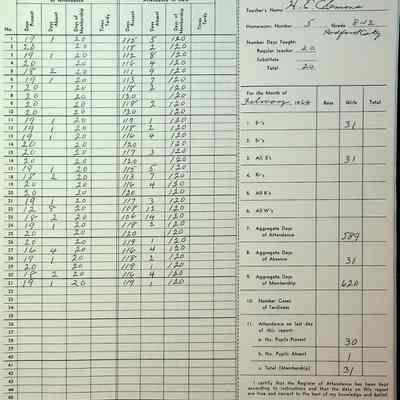 No.
Days Present
Days Absent
Days of Membership
Times Tardy
Days Present
Days Absent
Days of Membership
Times Tardy
1 19 1 20 115 5 120
2 20 20 118 2 120
3 19 1 20 112 8 120
4 20 20 116 4 120
5 18 2 20 111 9 120
6 19 20 113 7 120
7 20 20 118 2 120
8 20 20 120 120
9 20 20 118 2 120
10 20 20 120 120
11 19 1 20 119 1 120
12 19 1 20 118 2 120
13 19 1 20 116 4 120
14 20 20 120 120
15 20 20 117 3 120
16 20 20 120 120
17 19 1 20 115 5 120
18 18 2 20 113 7 120
19 20 20 116 4 120
20 20 20 120 120
21 19 1 20 117 3 120
22 12 8 20 108 12 120
23 18 2 20 106 14 120
24 19 1 20 118 2 120
25 20 20 120 120
26 20 20 119 1 120
27 16 4 20 116 4 120
28 19 1 20 118 2 120
29 20 20 119 1 120
30 18 2 20 116 4 120
31 19 1 20 119 1 120
Teacher's Name
Homeroom: Number 5 Grade
Number Days Taught:
Regular Teacher 20
Substitute
Total 20
For the Month of
February, Boys Girls Total
1. E's 31
2. D's
3. All E's 31
4.
5. All
6. All W's
7. Aggregate Days
of Attendance 589
8. Aggregate Days
of Absence 31
9. Aggregate Days
of Membership 620
10. Number Cases
of Tardiness
11. Attendance on last day
of this report:
a. No. Pupils Present 30
b. No. Pupils Absent 1
c. Total (Membership) 31
I certify that the Register of Attendance has been kept
according to instructions and that the data on this report
are true and correct to the best of my knowledge and belief.